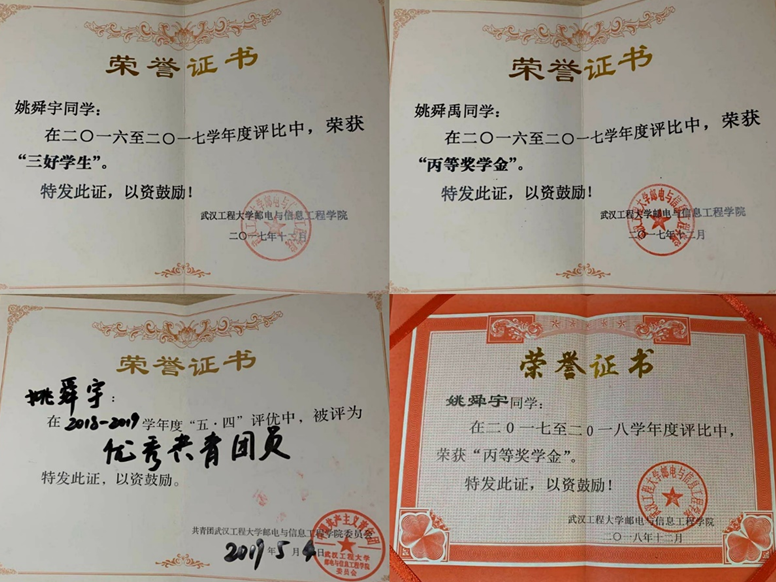 荣誉证书
姚舜宇同学：
在二〇一六至二〇一七学年度评比中，荣获
“三好学生”。
特发此证，以资鼓励！
武汉工程大学邮电与信息工程学院
二〇一七年十二月
荣誉证书
姚舜禹同学：
在二〇一六至二〇一七学年度评比中，荣获
“丙等奖学金”。
特发此证，以资鼓励！
武汉工程大学邮电与信息工程学院
二〇一七年十二月
荣誉证书
姚舜宇：
在2018-2019学年度“五·四”评优中，被评为
优秀共青团员
特发此证，以资鼓励。
共青团武汉工程大学邮电与信息工程学院委员会
2019年5月4日
荣誉证书
姚舜宇同学：
在二〇一七至二〇一八学年度评比中，
荣获“丙等奖学金”。
特发此证，以资鼓励！
武汉工程大学邮电与信息工程学院
二〇一八年十二月